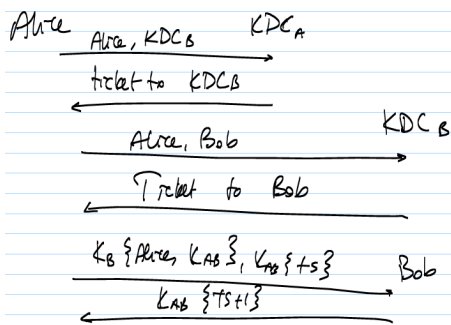 Alice KDC_A
Alice, KDC_B
ticket to KDCB
KDC_B
Alice, Bob
Ticket to Bob
K_B {Alice, K_AB}, K_AB {ts} Bob
K_AB {ts+1}